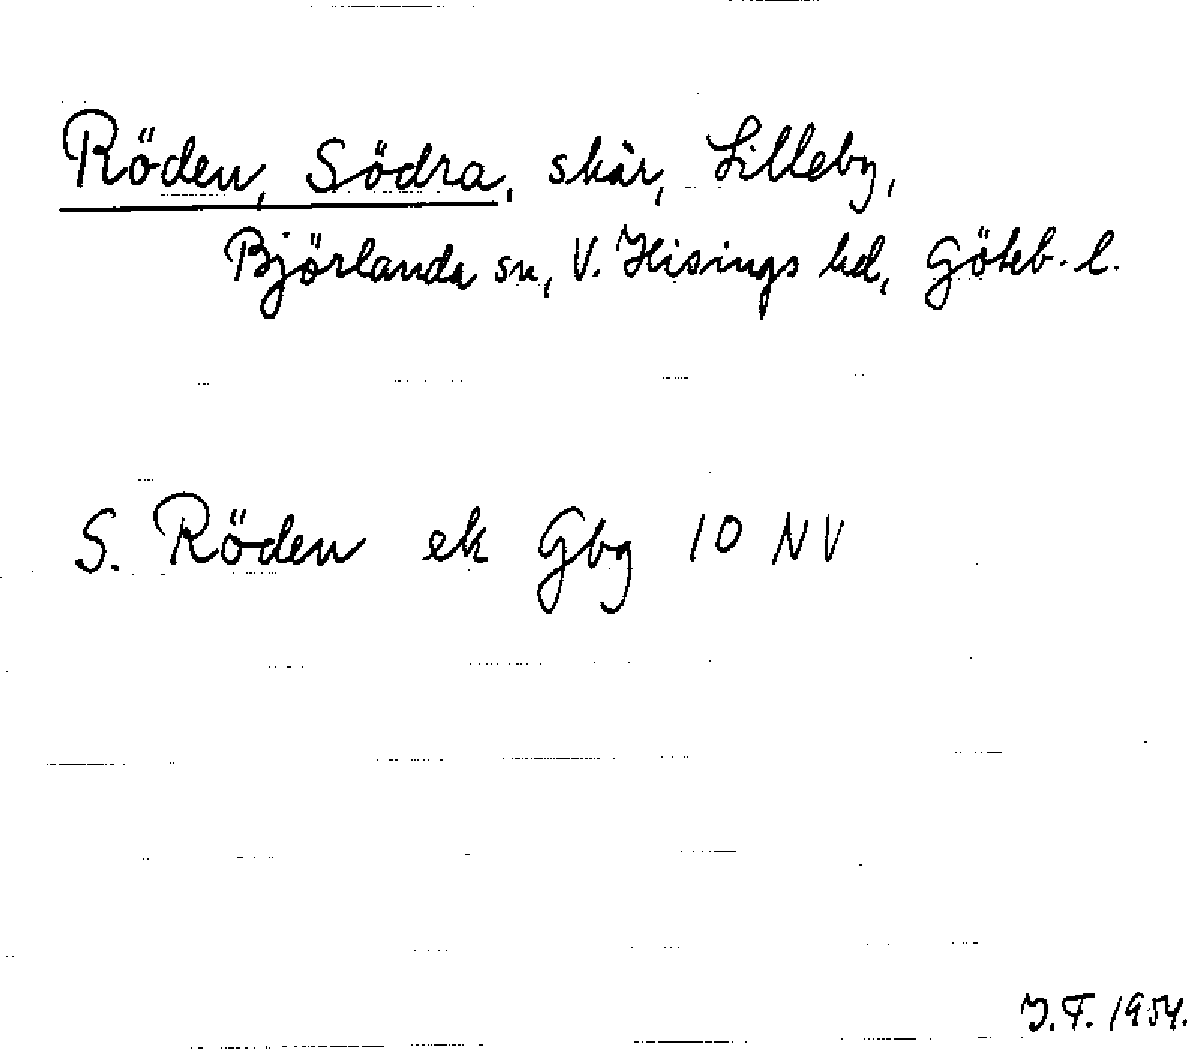 Röden, Södra, skär, Lilleby,
Björlanda sn, V. Hisings hd, Göteb. l.
S. Röden ek Gbg 10 NV
I.F. 1954.